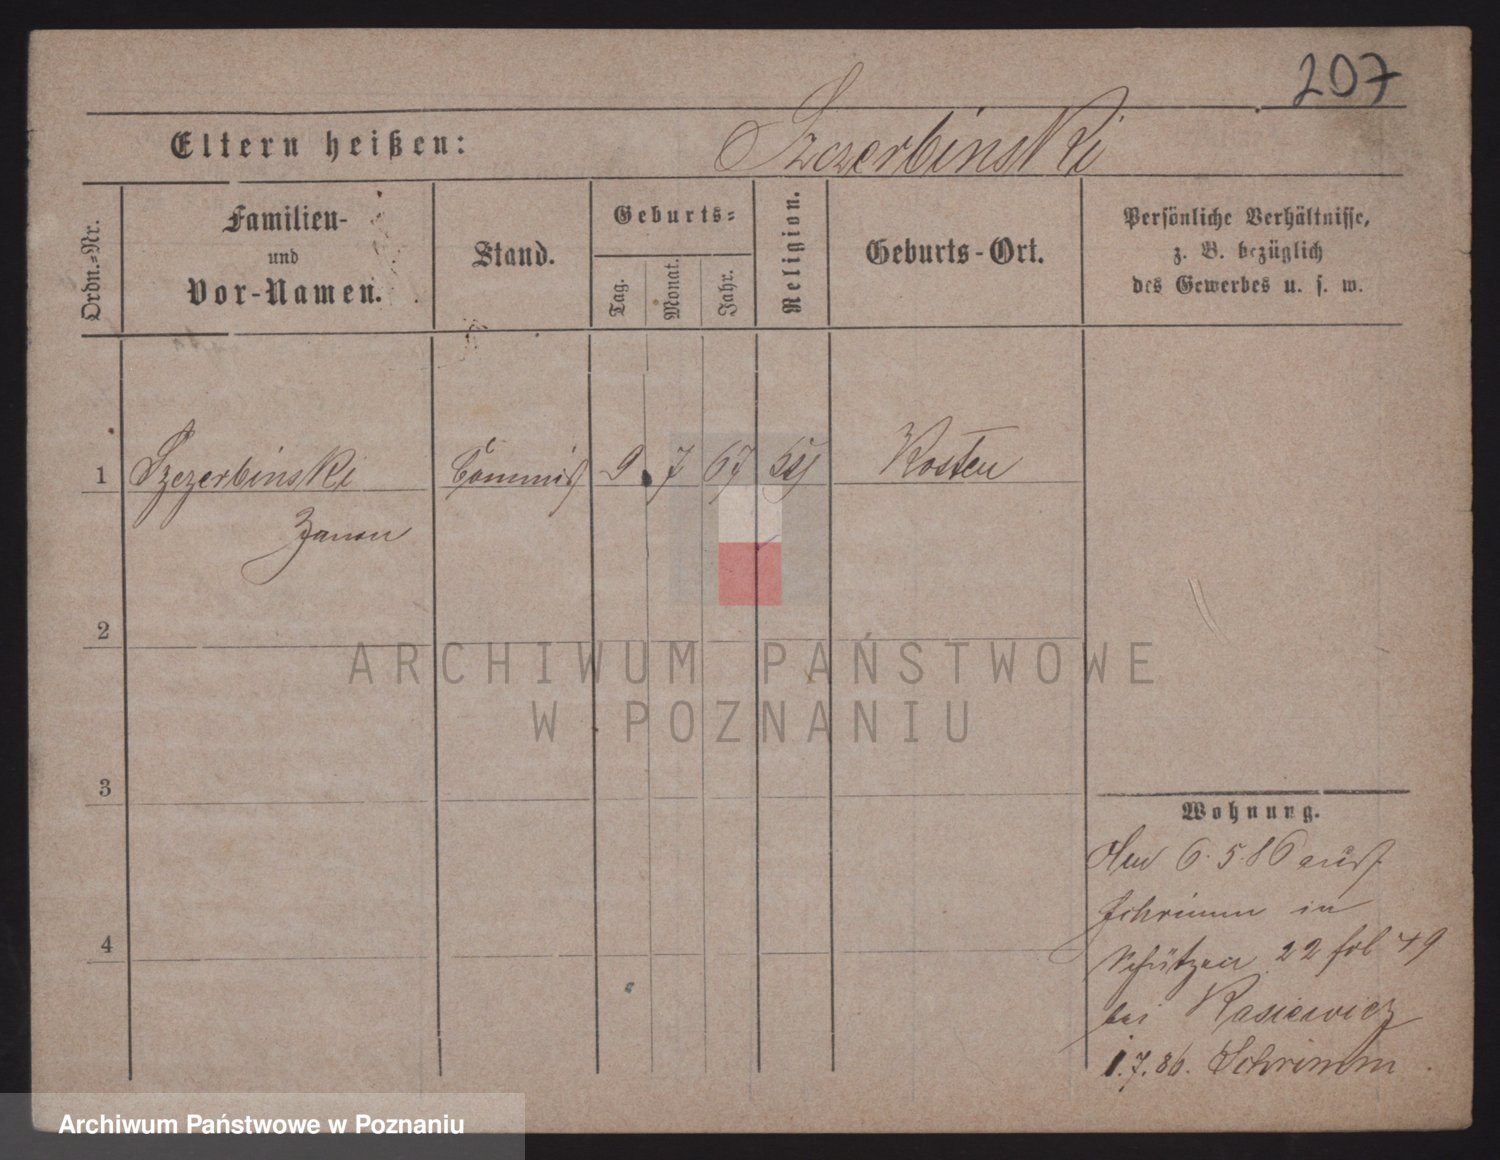 207
Eltern heißen: Szczerbinski
Ordn.=Nr.
Familien-
und
Vor-Namen.
Stand.
Geburts=
Tag.
Monat.
Jahr.
Religion.
Geburts-Ort.
Persönliche Verhältnisse,
z. B. bezüglich
des Gewerbes u. s. w.
1 Szczerbinski Commis 9. 7 67 Kosten
2
3
4
Wohnung.
6. 5. 86 aus
Schrimm in
Schützen 22 fol 49
bei Rasiewicz
1. 7. 86. Schrimm
ARCHIWUM PAŃSTWOWE
W POZNANIU
Archiwum Państwowe w Poznaniu